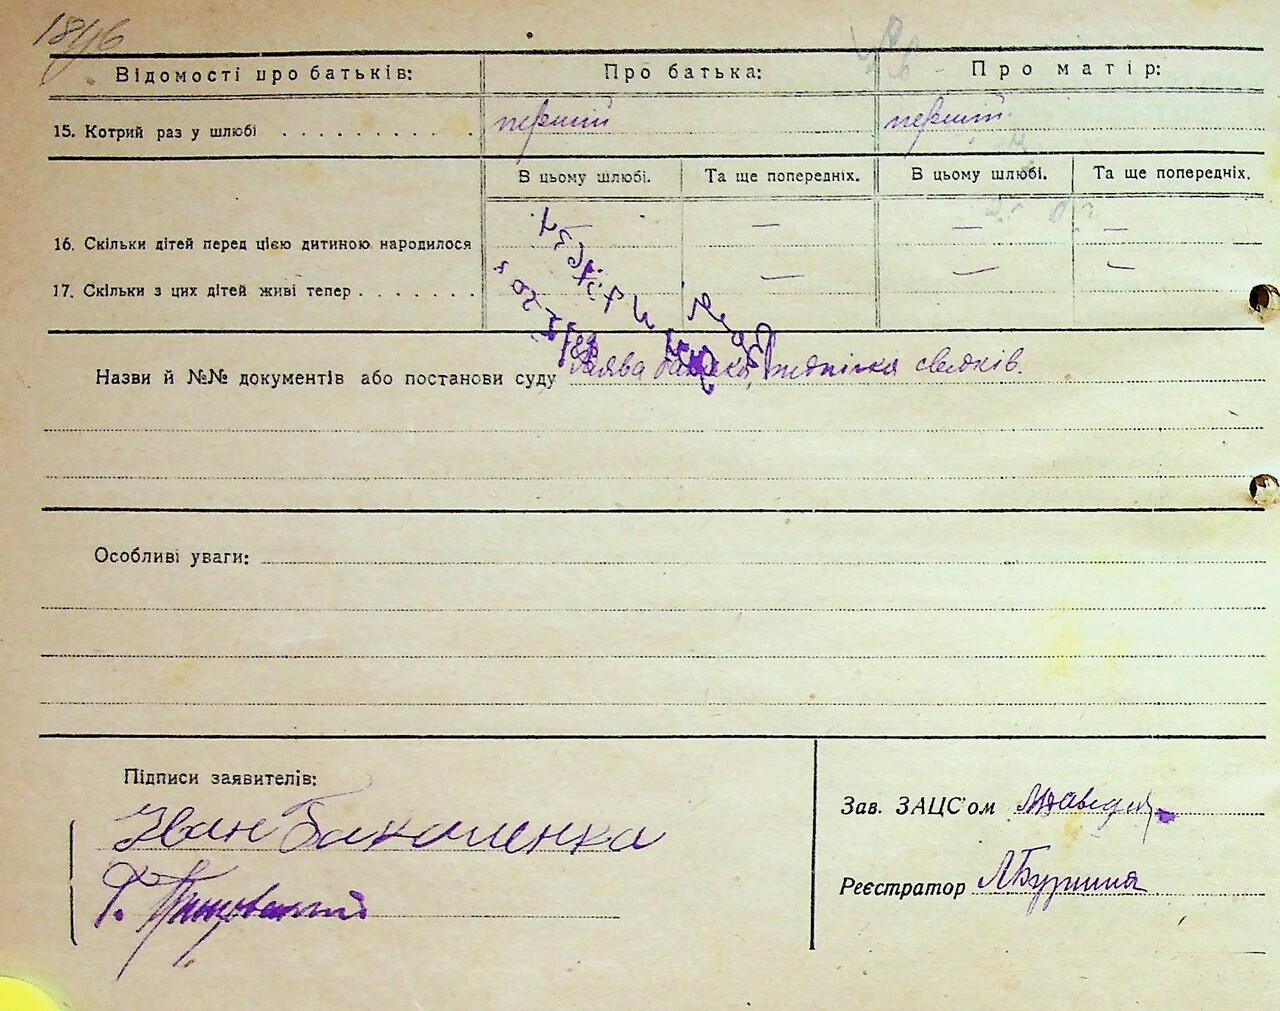 1846
Відомості про батьків: Про батька: Про матір:
15. Котрий раз у шлюбі . . . . . . . . . . перший перший
В цьому шлюбі. Та ще попередніх. В цьому шлюбі. Та ще попередніх.
16. Скільки дітей перед цією дитиною народилося — — —
17. Скільки з цих дітей живі тепер . . . . . . . — — —
Назви й №№ документів або постанови суду Заява батька, підписка свідків.
Особливі уваги:
Підписи заявителів:
Іван
Г.
Зав. ЗАЦС'ом
Реєстратор